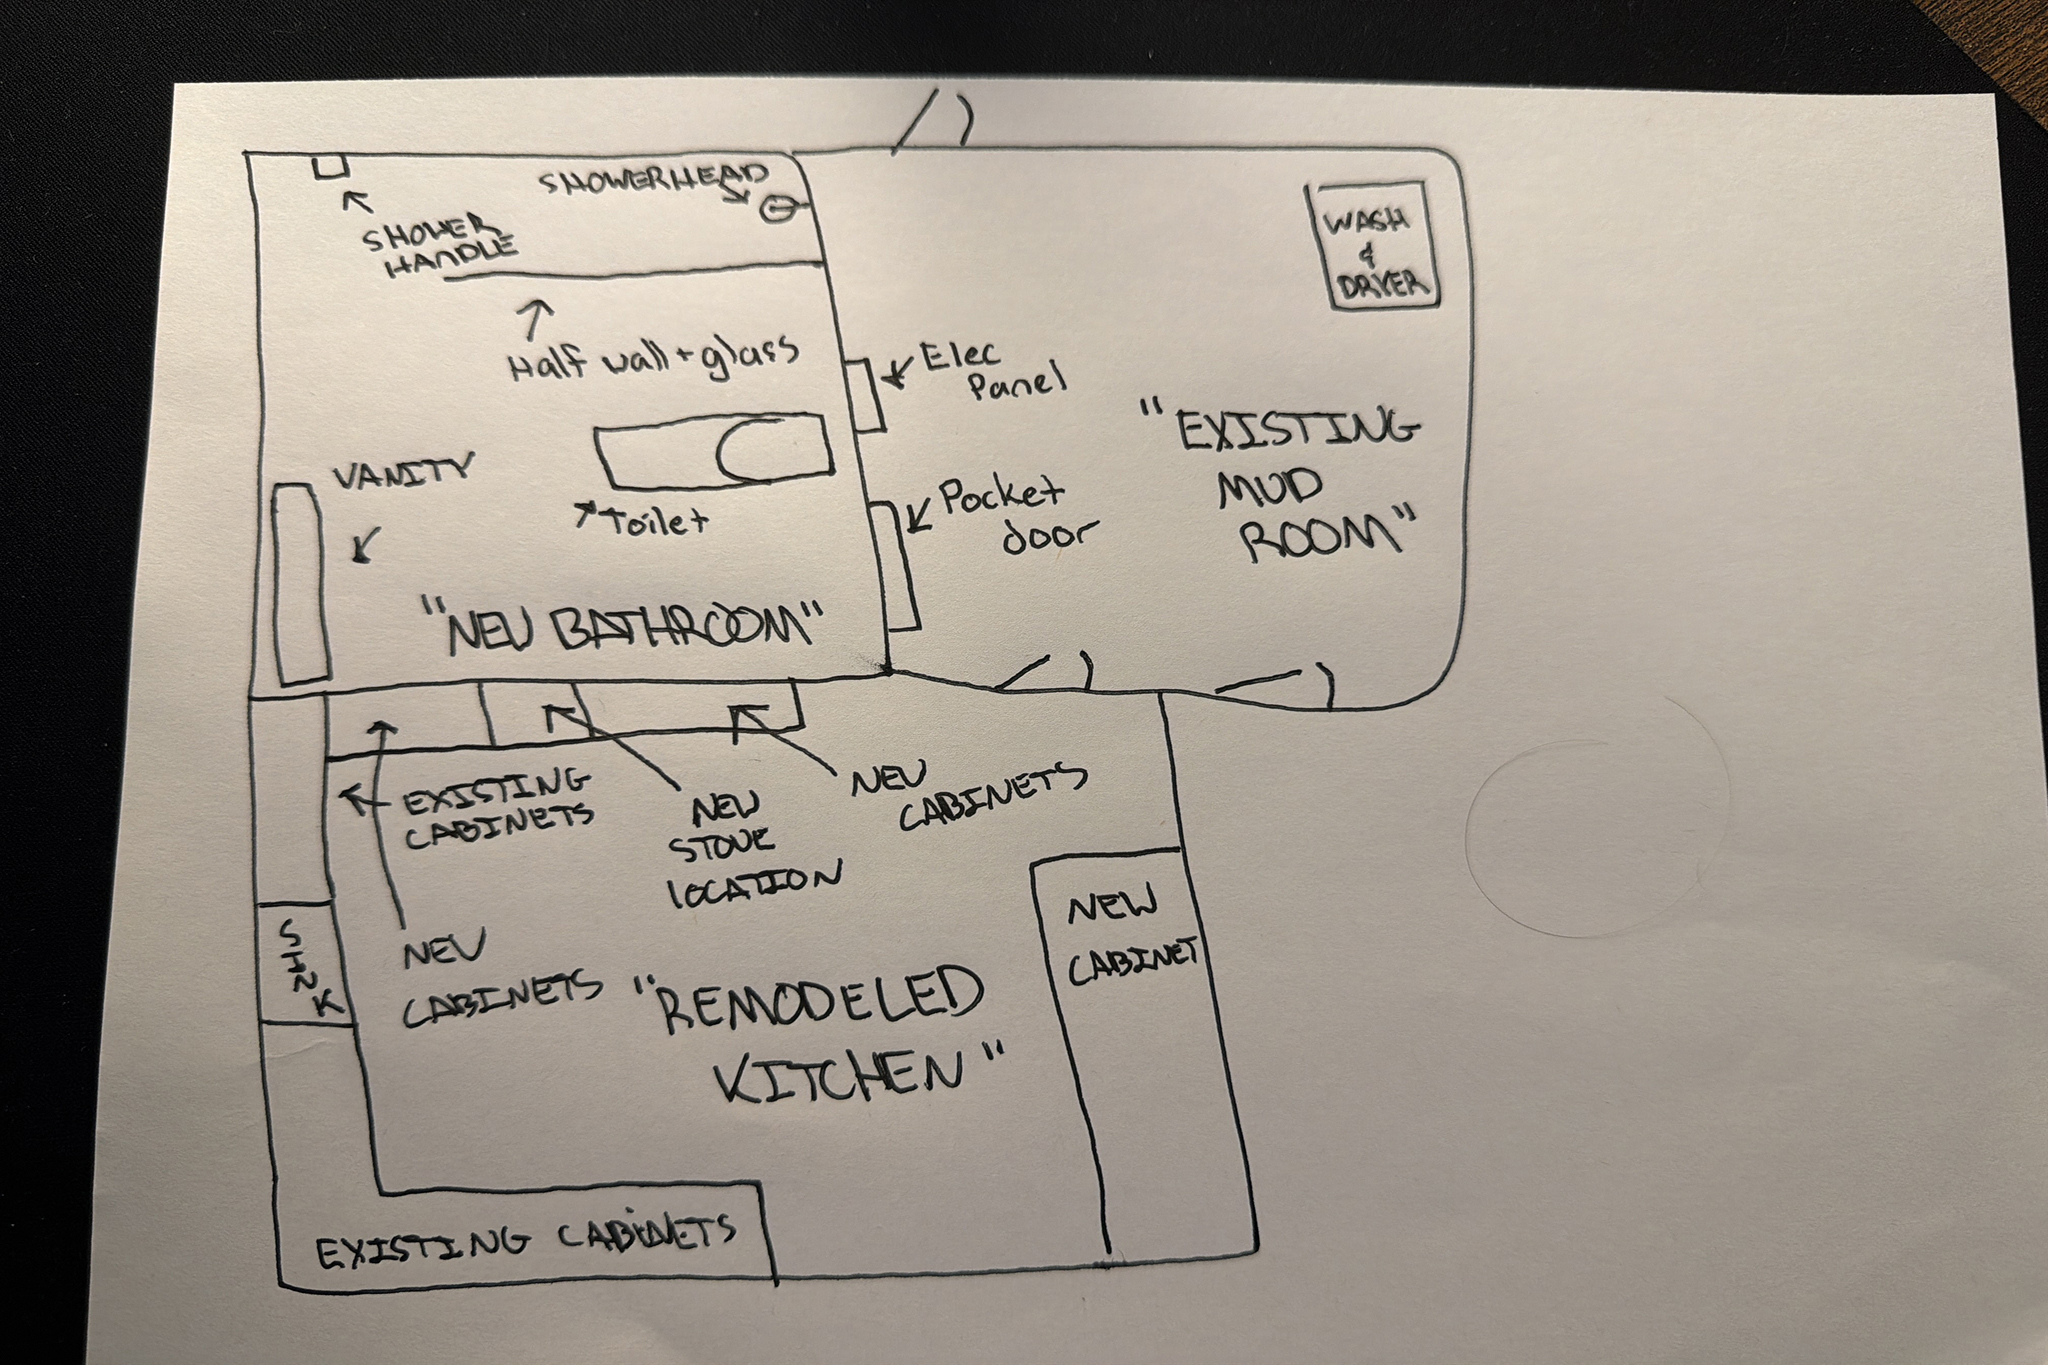 SHOWERHEAD
SHOWER
HANDLE
Half wall + glass
WASH
&
DRYER
Elec
Panel
"EXISTING
MUD
ROOM"
VANITY
Toilet
Pocket
door
"NEW BATHROOM"
EXISTING
CABINETS
NEW
STOVE
LOCATION
NEW
CABINETS
SINK
NEW
CABINETS
NEW
CABINET
"REMODELED
KITCHEN"
EXISTING CABINETS